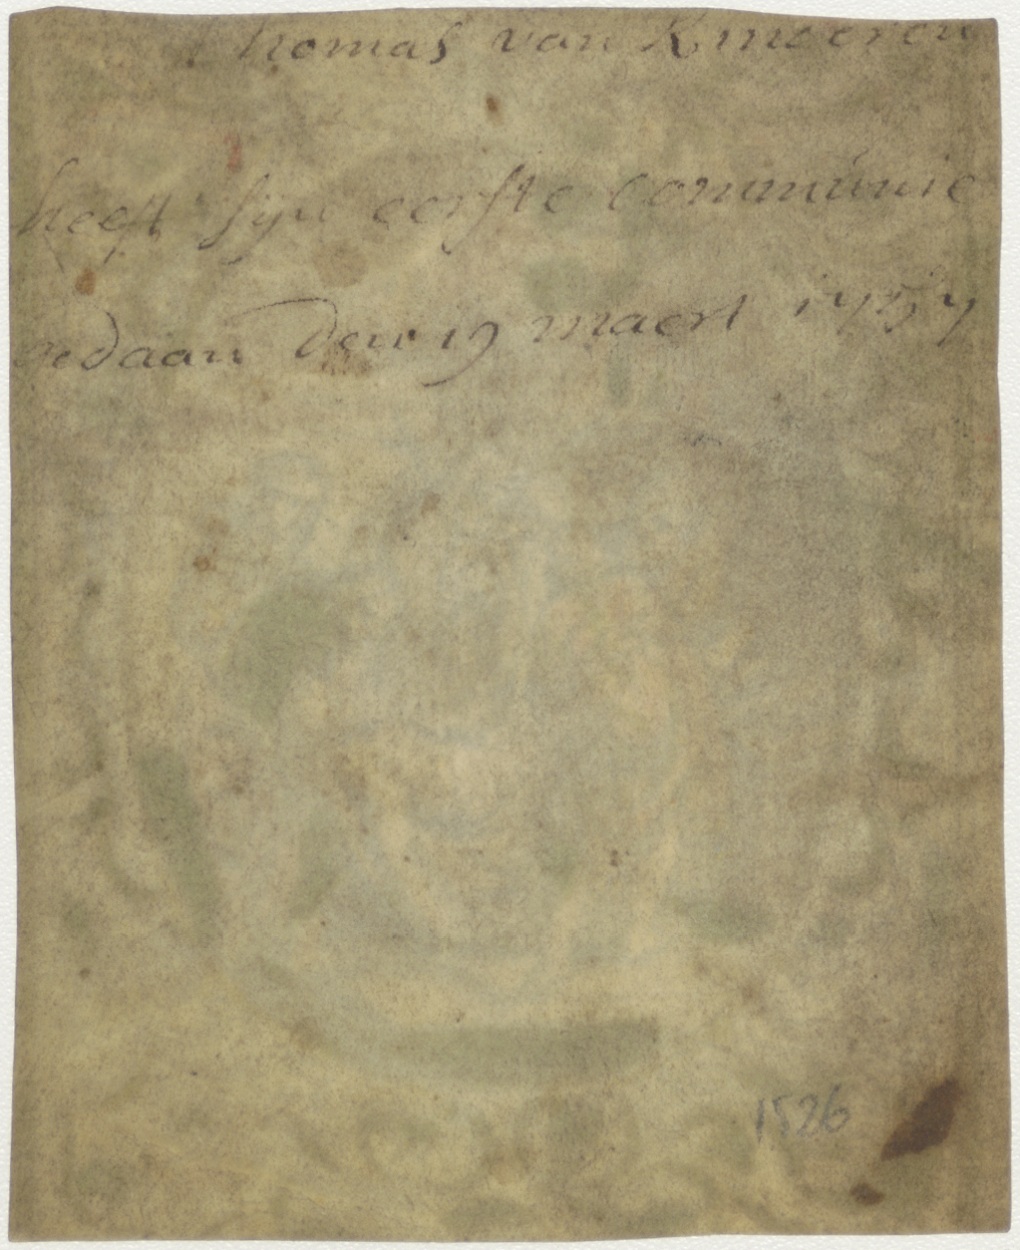 Thomas van
heeft sijn eerste communie
gedaan den 19 maert 1757
1526